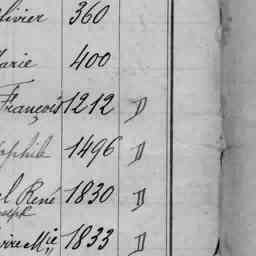 livier 360
arie 400
François 1212 D
ophile 1496 D
l René 1830 D
oseph
oire Mie 1833 D